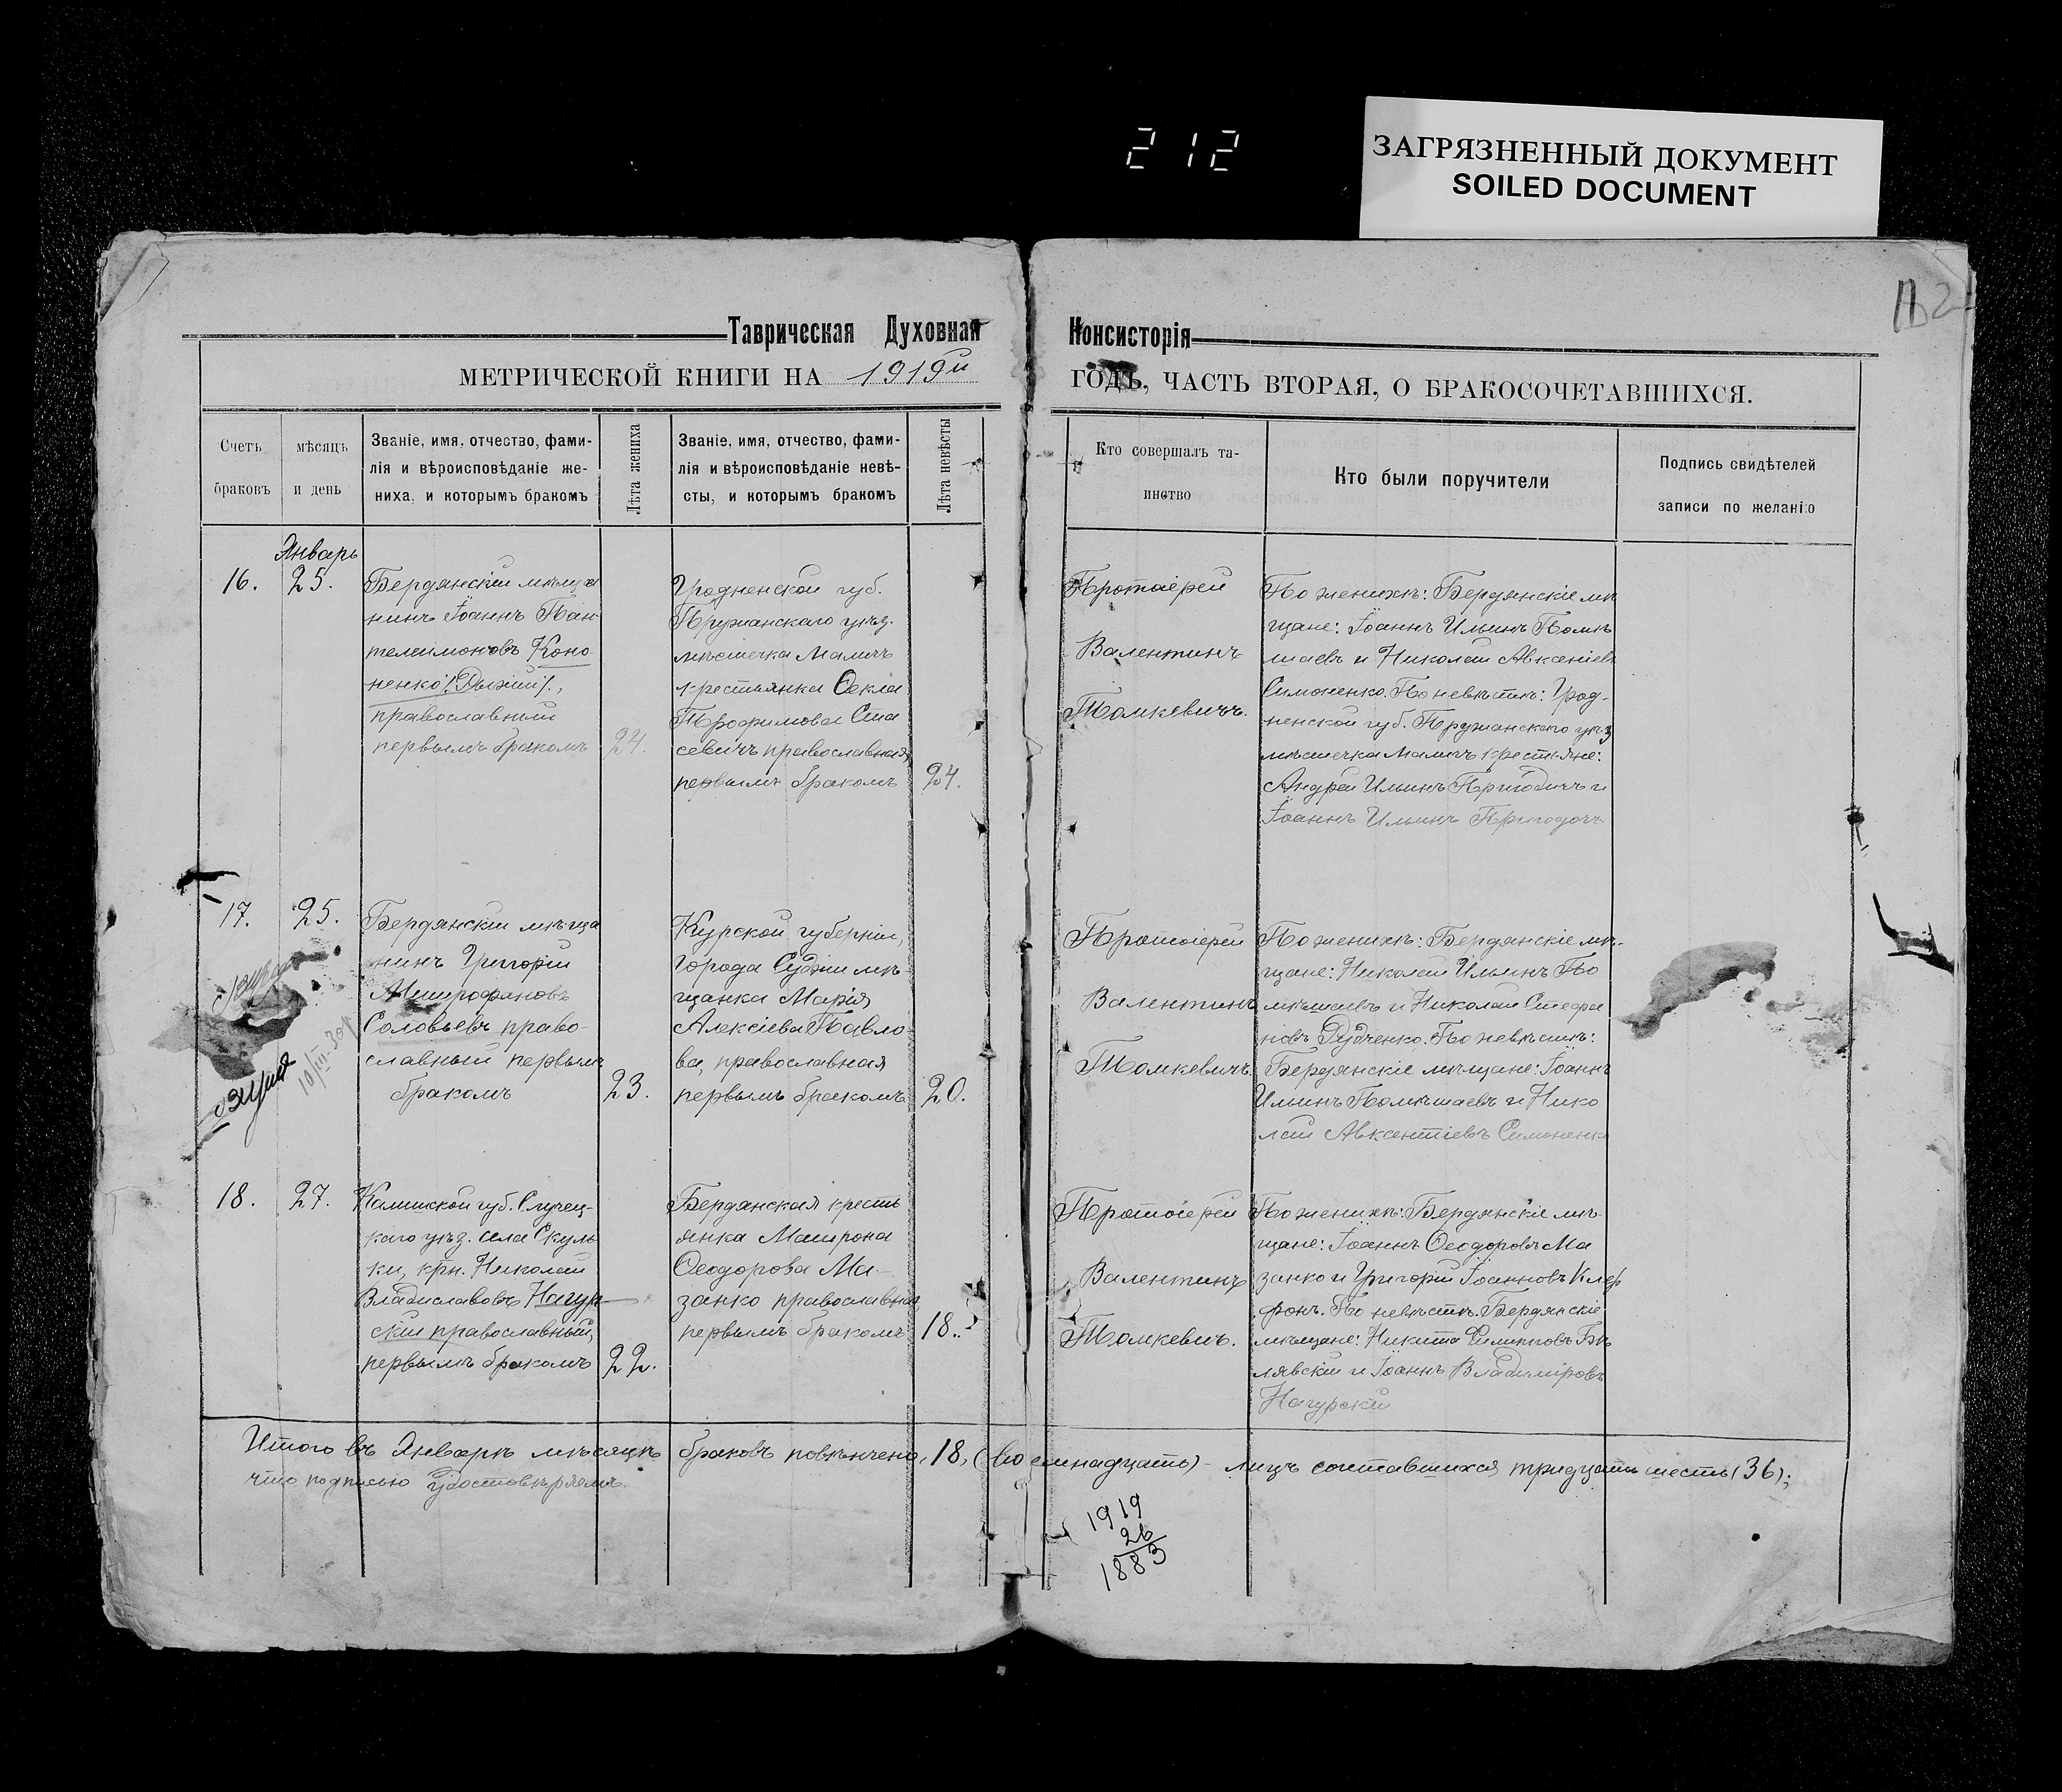 212
ЗАГРЯЗНЕННЫЙ ДОКУМЕНТ
SOILED DOCUMENT
Таврическая Духовная Консисторія
МЕТРИЧЕСКОЙ КНИГИ НА 1919й ГОДЪ, ЧАСТЬ ВТОРАЯ, О БРАКОСОЧЕТАВШИХСЯ.
Счетъ
браковъ
мѣсяцъ
и день
Званіе, имя, отчество, фами-
лія и вѣроисповѣданіе же-
ниха, и которымъ бракомъ
Лѣта жениха
Званіе, имя, отчество, фами-
лія и вѣроисповѣданіе невѣ-
сты, и которымъ бракомъ
Лѣта невѣсты
Кто совершалъ та-
инство
Кто были поручители
Подпись свидѣтелей
записи по желанію
Январь
16.
25.
Бердянскій мѣща
нинъ Іоаннъ Пан
телеимоновъ Коно
ненко
православный
первымъ бракомъ
24.
Гродненской губ.
Пружанскаго уѣз.
мѣстечка Малечъ
крестьянка Ѳекла
Трофимова Ста
севичъ православная
первымъ бракомъ
24.
Протоіерей
Валентинъ
Томкевичъ.
По женихѣ: Бердянскіе мѣ
щане: Іоаннъ Ильинъ Помѣ
шаевъ и Николай Авксеніевъ
Симоненко. По невѣстѣ: Грод-
ненской губ. Пружанскаго уѣз
мѣстечка Малечъ крестьяне:
Андрей Ильинъ Пригодичъ и
Іоаннъ Ильинъ Пригодичъ
17.
25.
Бердянскій мѣща
нинъ Григорій
Митрофановъ
Соловьевъ право-
славный первымъ
бракомъ
23.
Курской губерніи,
города Суджи мѣ
щанка Марія
Алексіева Павло-
ва, православная
первымъ бракомъ
20.
Протоіерей
Валентинъ
Томкевичъ
По женихѣ: Бердянскіе мѣ-
щане: Николай Ильинъ По
мѣшаевъ и Николай Стефа
новъ Рудченко. По невѣстѣ:
Бердянскіе мѣщане: Іоаннъ
Ильинъ Помѣшаевъ и Нико
лай Авксентіевъ Симоненко
18.
27.
губ. Слуцец-
каго уѣз. села Скуль
ки, крн. Николай
Владиславовъ Нагур
скій православный,
первымъ бракомъ
22.
Бердянская кресть
янка Матрона
Ѳеодорова Ма-
занко православная
первымъ бракомъ
18.
Протоіерей
Валентинъ
Томкевичъ.
По женихѣ: Бердянскіе мѣ-
щане: Іоаннъ Ѳеодоровъ Ма
занко и Григорій Іоанновъ Клер
фонъ. По невѣстѣ. Бердянскіе
мѣщане: Никита Филипповъ Бѣ
лявскій и Іоаннъ Владиміровъ
Нагурскій
Итого въ Январѣ мѣсяцѣ браковъ повѣнчено, 18, (восемнадцать) - лицъ сочетавшихся тридцать шесть (36);
что подписью удостовѣряемъ.
1919
26
1883